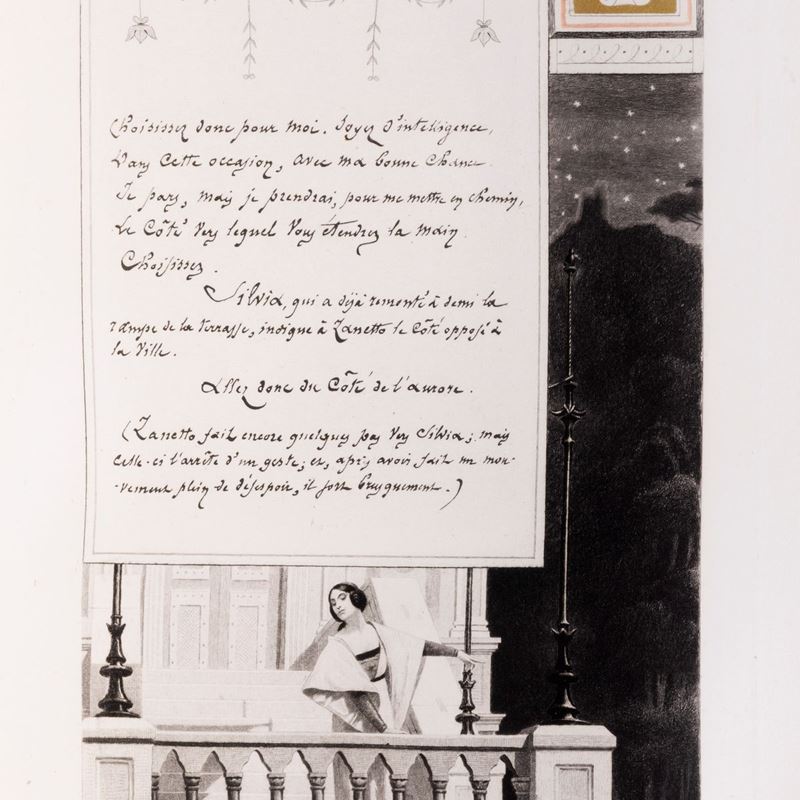 Choisissez donc pour moi. Soyez d'intelligence,
Dans cette occasion, avec ma bonne chance.
Je pars, mais je prendrai, pour me mettre en chemin,
Le côté vers lequel vous étendrez la main.
Choisissez.
Silvia, qui a déjà remonté à demi la
rampe de la terrasse, indique à Zanetto le côté opposé à
la ville.
Allez donc du côté de l'aurore.
(Zanetto fait encore quelques pas vers Silvia; mais
celle-ci l'arrête d'un geste; et, après avoir fait un mou-
-vement plein de désespoir, il sort brusquement.)